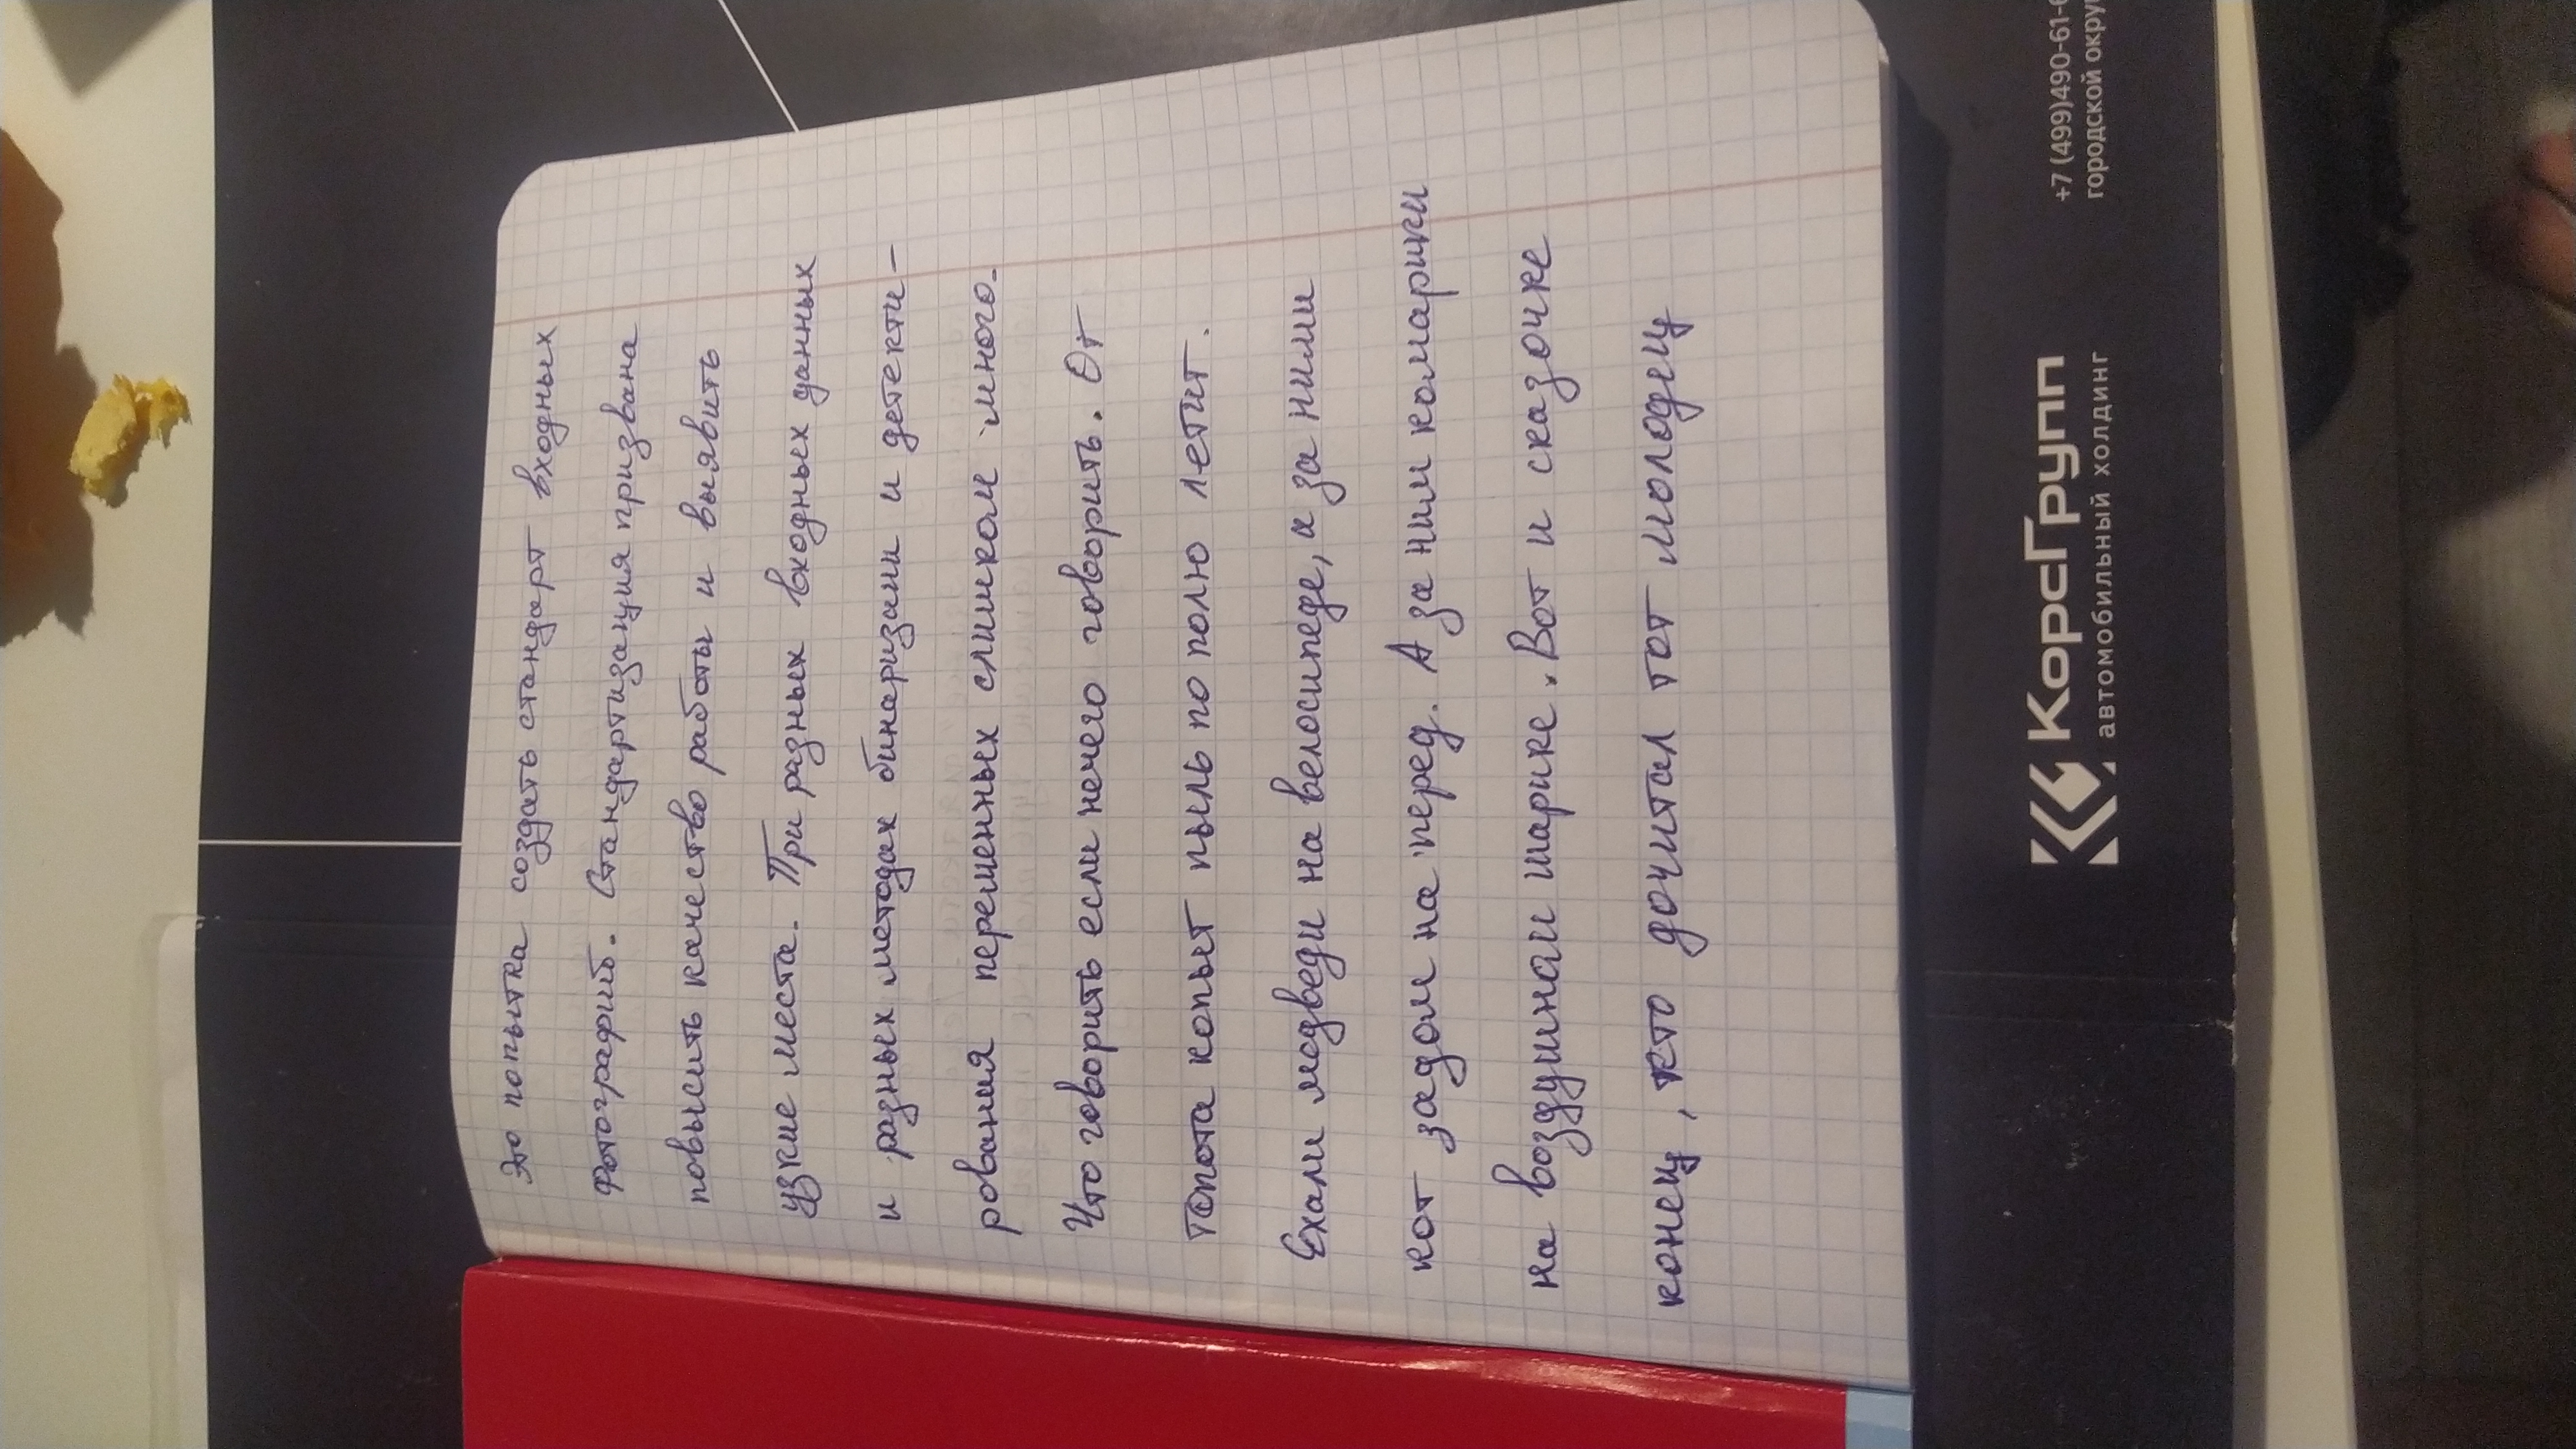 Это попытка создать стандарт входных
фотографий. Стандартизация призвана
повысить качество работы и выявить
узкие места. При разных входных данных
и разных методах бинаризани и детекти-
рования переменных слишком много.
Что говорить если нечего говорить. От
топота копыт пыль по полю летит.
Ехали медведи на велосипеде, а за ними
кот задом на перед. А за ним комарики
на воздушном шарике. Вот и сказочке
конец, кто дочитал тот молодец
КорсГрупп
автомобильный холдинг
+7 (499)490-61-
городской окру